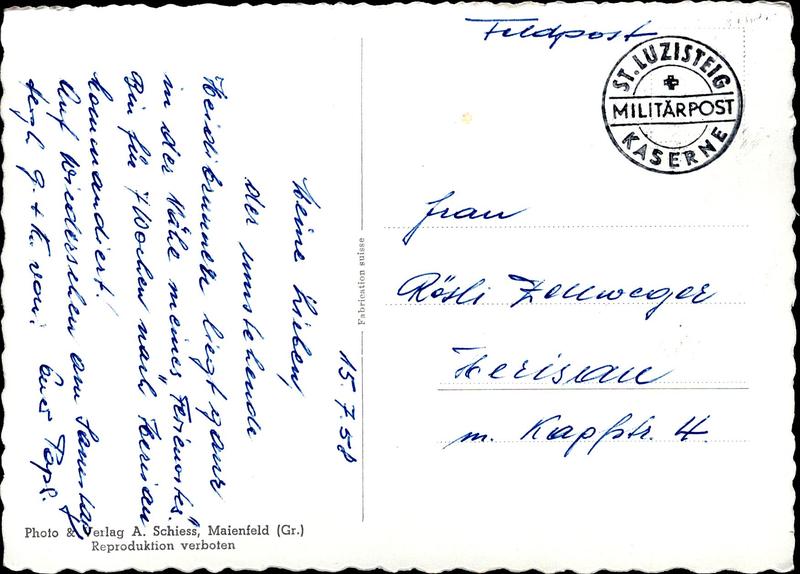 Feldpost
ST. LUZISTEIG
MILITÄRPOST
KASERNE
Frau
Rösli Zellweger
Herisau
m. Kapfstr. 4.
Fabrication suisse
15.7.58
Meine Lieben,
der umstehende
Heidibrunnen liegt ganz
in der Nähe meines "Ferienortes".
Bin für 7 Wochen nach Herisau
kommandiert!
Auf Wiedersehen am Samstag
herzl. G. + K. von: Euer Papi.
Photo & Verlag A. Schiess, Maienfeld (Gr.)
Reproduktion verboten